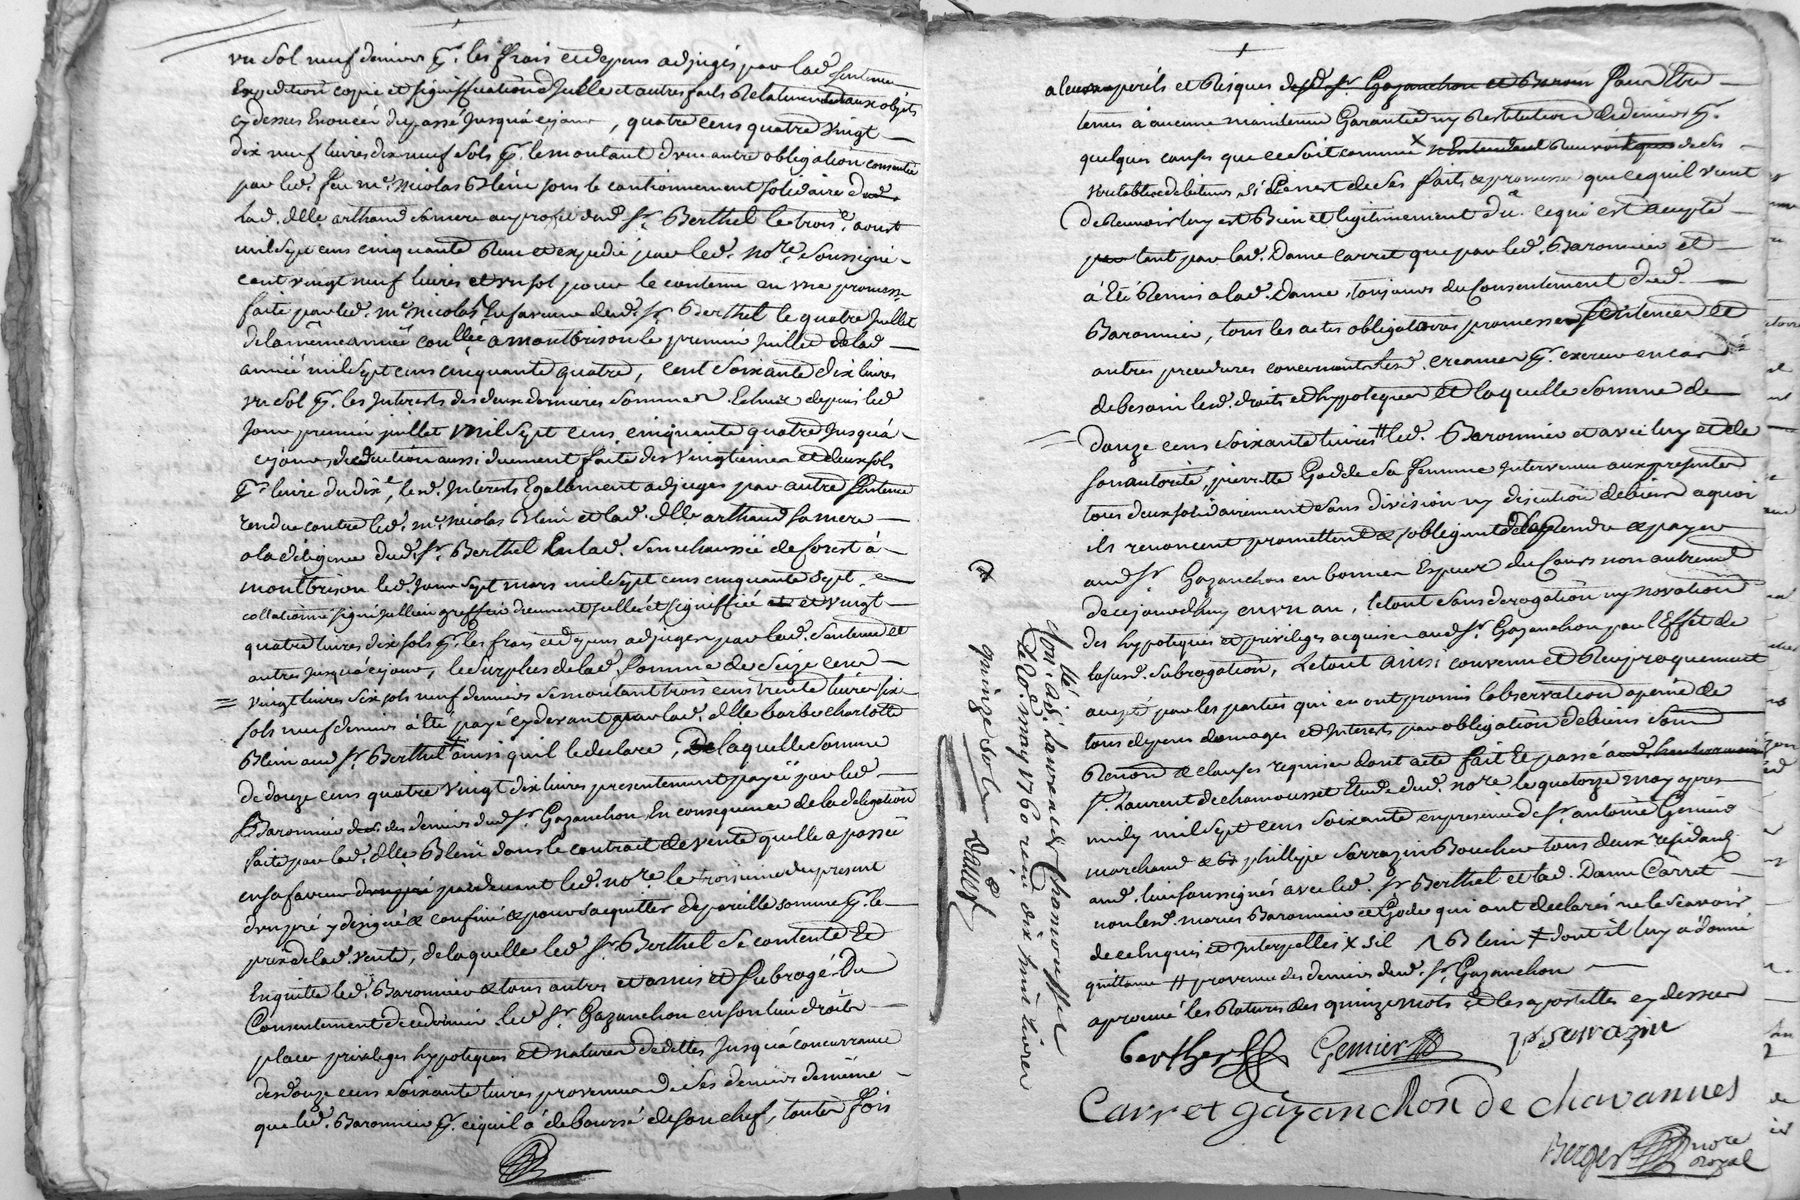 un sol neuf deniers p.r les frais et depens adjugés par lad. sentence
Expedition copie et signiffication d'Icelle et autres faits Relativement aux objets
cy dessus Enoncés du passé Jusqu'à ce jour, quatre cens quatre vingt
dix neuf livres dix neuf sols p.r le montant d'une autre obligation consentie
par led. feu m.e Nicolas Blein sous le cautionnement solidaire de
lad. dlle arthaud sa mere au profit dud. s.r Berthel le trois.e aoust
mil sept cens cinquante Reçu et expedié par led. no.re soussigné
cent vingt neuf livres et un sol pour le contenu en une promesse
faite par led. m.e Nicolas En faveur dud. s.r Berthel le quatre Juillet
de la même année conllée a montbrison le premier Juillet de lad.
année mil sept cens cinquante quatre, cent soixante dix livres
un sol p.r les Interests des deux dernieres sommes Echus depuis led.
Jour premier juillet mil sept cens cinquante quatre Jusqu'à
ce jour deduction aussi duement faite des vingtiemes et deux sols
p.r livre du dix.e, lesd. Interests Egallement adjugés par autre sentence
rendue contre led. m.e Nicolas Blein et lad. dlle arthaud sa mere
a la diligence dud. s.r Berthel En lad. senechaussée de forest à
montbrison led. Jour sept mars mil sept cens cinquante sept
collationné signé Jullien greffier duement scellée et signiffiée et vingt
quatre livres dix sols p.r les frais et depens adjugés par lad. sentence et
autres jusqu'à ce jour, le surplus de lad. somme de seize cens
vingt livres six sols neuf deniers se montant trois cens trente livres six
sols neuf deniers à été payé cy devant par lad. dlle barbe charlotte
Blein aud. s.r Berthel ainsi qu'il le declare, De laquelle somme
de douze cens quatre vingt dix livres presentement payée par led.
Baronnier des deniers dud. s.r Gazanchon En consequence de la delegation
faite par lad. dlle Blein dans le contrat de vente qu'elle a passé
en sa faveur pardevant led. no.re le troisieme du present
y designé & confiné & pour s'acquitter de pareille somme p.r le
prix de lad. vente, de laquelle led. s.r Berthel se contente Et
En quitte led. Baronnier & tous autres et a mis et subrogé Du
Consentement de ce dernier led. s.r Gazanchon en son lieu droits
places privileges hypoteques Et nature de dettes Jusqu'à concurrance
des douze cens soixante livres provenues de ses deniers de même
que led. Baronnier p.r ce qu'il à deboursé de son chef, toutes fois
a leurs perils et Risques desd. s.rs Gazanchon et Baron sans Etre
tenus à aucune maintenue Garantie ny Restitution de deniers p.r
quelques causes que ce soit comme x de ses
veritables debiteurs si ce n'est de ses faits & promesses que ce qu'il vient
de Recevoir luy est Bien et legitimement du. ce qui est accepté
tant par lad. Dame Carret que par led. Baronnier et
à Eté Remis a lad. Dame, toujours du Consentement dud.
Baronnier, tous les actes obligatoires promesses sentences et
autres procedures concernants lesd. creances p.r exercer en cas
de besoin lesd. droits et hypoteques et laquelle somme de
douze cens soixante livres # led. Baronnier et avec luy et de
son autorité, pierrette Godde sa femme Intervenue aux presentes
tous deux solidairement sans division ny discution de biens a quoi
ils renoncent promettent & s'obligent de Rendre & payer
aud. s.r Gazanchon en bonnes Especes du Cours non autrement
de ce jourd'huy en un an, le tout sans derogation ny novation
des hypoteques et privileges acquises aud. s.r Gazanchon par l'Effet de
la susd. subrogation, Le tout ainsi convenu et Reciproquement
accepté par les parties qui en ont promis l'observation a peine de
tous depens domages et Interests par obligation de biens soum.
Renonc. & clauses requises dont acte fait Et passé
S.t Laurent de chamousset Etude dud. no.re le quatorze may apres
midy mil sept cens soixante en presence de s.r antoine Gemier
marchand & phillipe Sarrazin Boucher tous deux residants
aud. lieu soussignés avec led. s.r Berthel et lad. Dame Carret
non lesd. mariés Baronnier et Godde qui ont declarés ne le sçavoir
de ce Enquis et Interpellés x sil ^ Blein # dont il luy à donné
quittance # provenue des deniers dud. s.r Gazanchon
aprouvé les Ratures des quinze mots et les apostilles cy dessus
berthel
Gemier
ph sarrazin
Carret gazanchon de chavannes
Berger no.re royal
Con.llé à S.t Laurent de Chamousset
le 20. may 1760 reçu dix huit livres
quinze sols